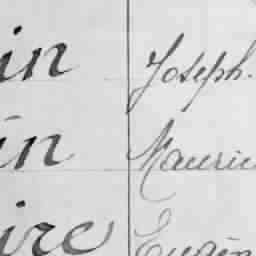 in Joseph.
in Mauric
ire Eugèn